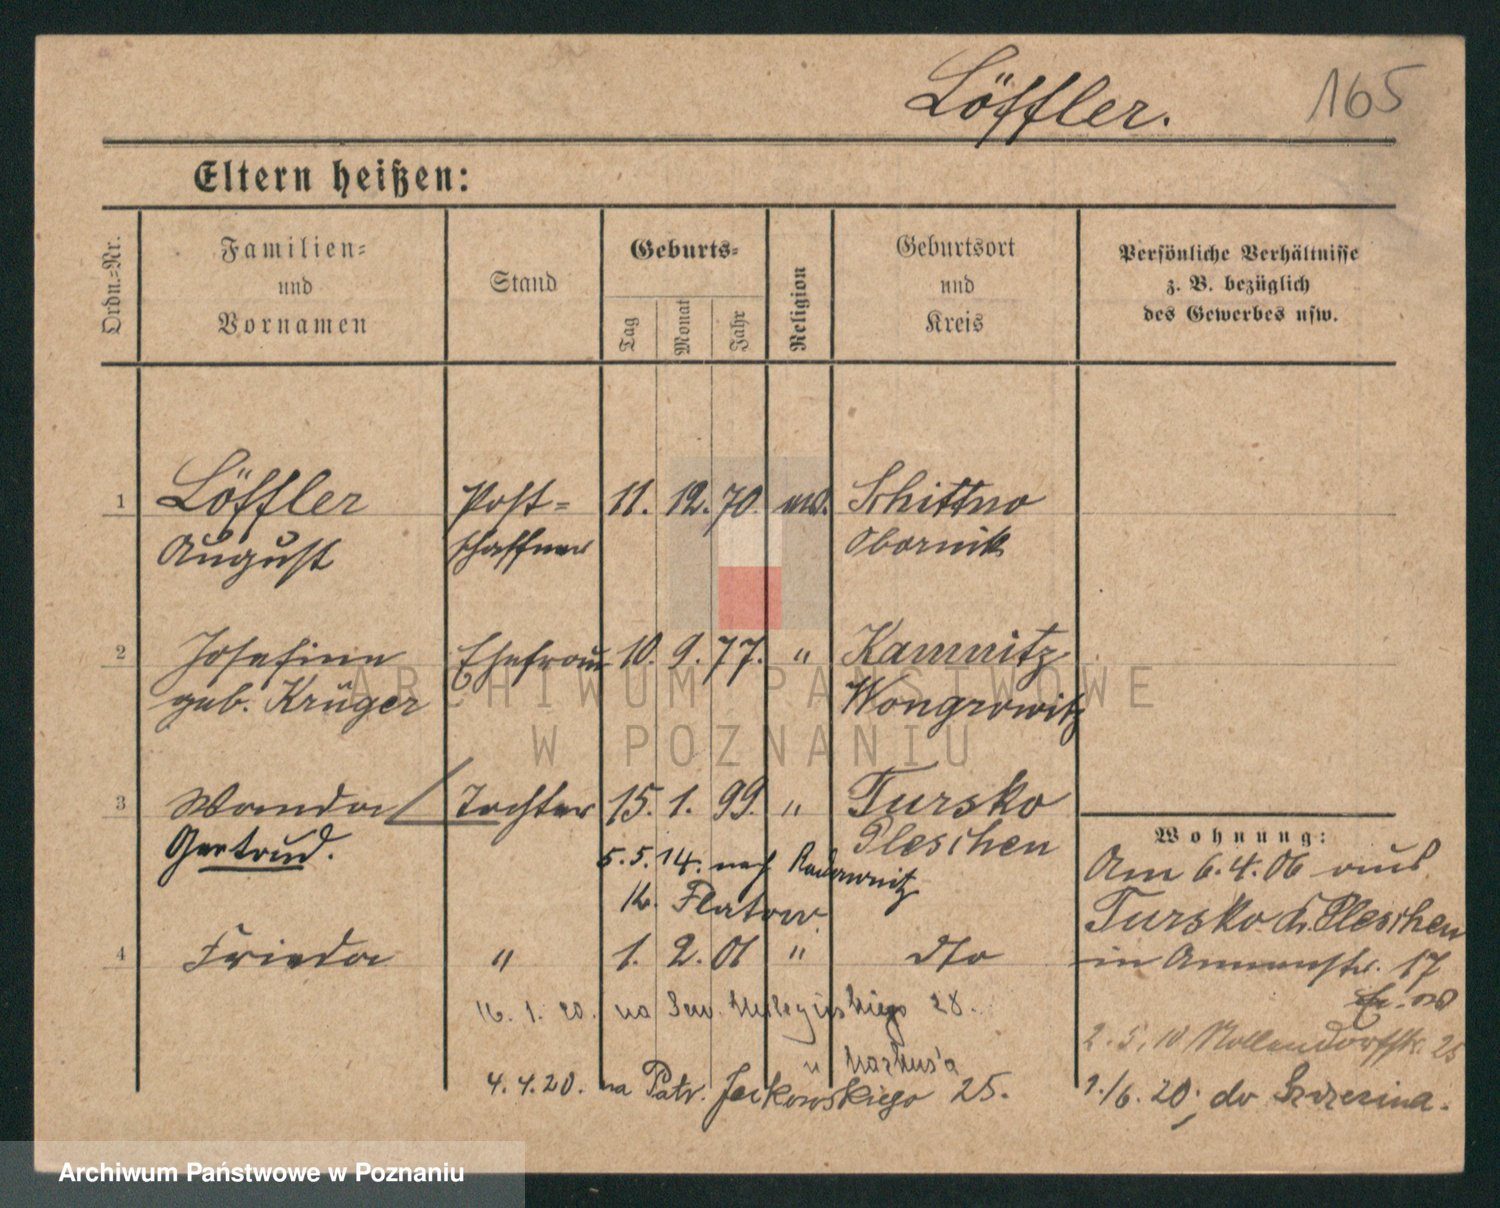 Löffler. 165
Eltern heißen:
Ordn.=Nr.
Familien=
und
Vornamen
Stand
Geburts=
Tag
Monat
Jahr
Religion
Geburtsort
und
Kreis
Persönliche Verhältnisse
z. B. bezüglich
des Gewerbes usw.
1 Löffler Post= 11. 12. 70. Schittno
August schaffner Obornik
2 Josefine Ehefrau 10. 9. 77. " Kamnitz
geb. Krüger Wongrowitz
3 Wanda Tochter 15. 1. 99. " Tursko
Gertrud. Pleschen
5. 5. 14. nach Radawnitz
K. Flatow.
4 Frieda " 1. 2. 01 " dto
16. 1. 20. na 28.
4. 4. 20. na Patr. Jackowskiego 25.
Wohnung:
Am 6.4.06 aus
Tursko K. Pleschen
in Annenstr. 17
2. 5. 10 Nollendorfstr. 25
1./6. 20. do
ARCHIWUM PAŃSTWOWE
W POZNANIU
Archiwum Państwowe w Poznaniu